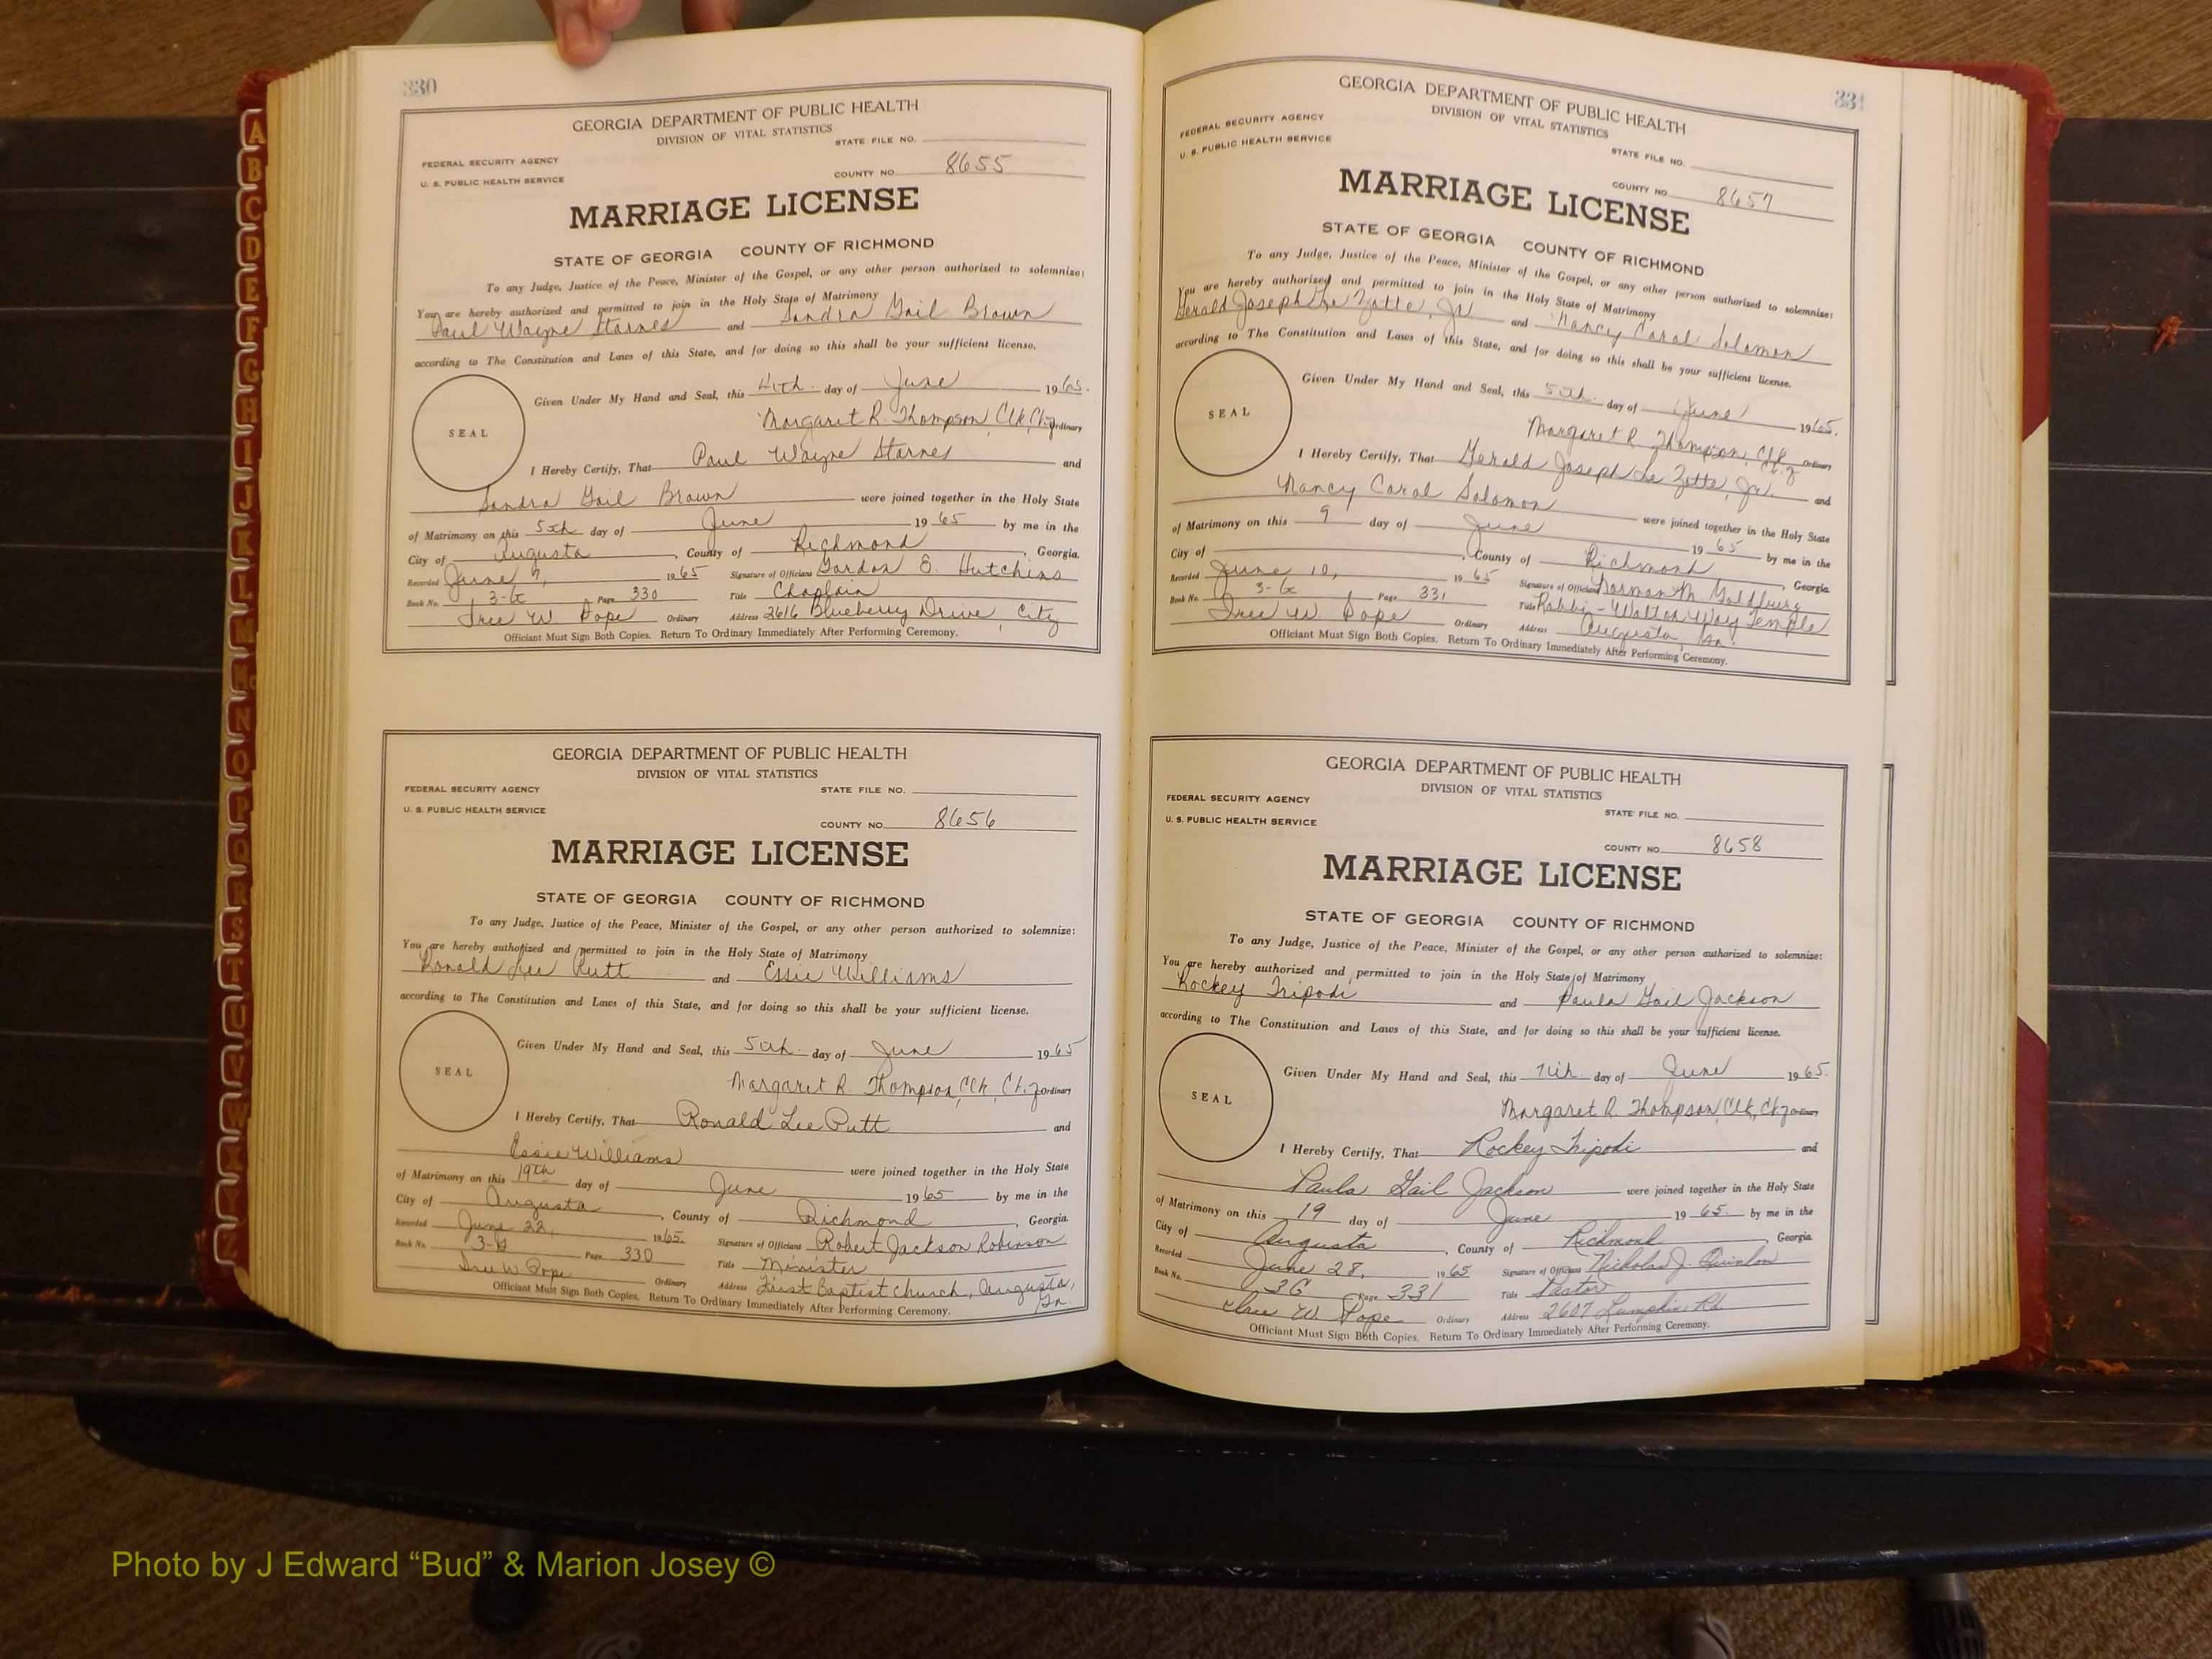 330
GEORGIA DEPARTMENT OF PUBLIC HEALTH
DIVISION OF VITAL STATISTICS
STATE FILE NO.
FEDERAL SECURITY AGENCY
U. S. PUBLIC HEALTH SERVICE
COUNTY NO. 8655
MARRIAGE LICENSE
STATE OF GEORGIA COUNTY OF RICHMOND
To any Judge, Justice of the Peace, Minister of the Gospel, or any other person authorized to solemnize:
You are hereby authorized and permitted to join in the Holy State of Matrimony
Paul Wayne Starnes and Sandra Gail Brown
according to The Constitution and Laws of this State, and for doing so this shall be your sufficient license.
Given Under My Hand and Seal, this 4th day of June 1965.
SEAL
Margaret R. Thompson, Clk, Ordinary
I Hereby Certify, That Paul Wayne Starnes and
Sandra Gail Brown were joined together in the Holy State
of Matrimony on this 5th day of June 1965 by me in the
City of Augusta, County of Richmond, Georgia.
Recorded June 7, 1965 Signature of Officiant Gordon E. Hutchins
Book No. 3-G Page 330 Title Chaplain
Iree W Pope Ordinary Address 2616 Blueberry Drive, City
Officiant Must Sign Both Copies. Return To Ordinary Immediately After Performing Ceremony.
GEORGIA DEPARTMENT OF PUBLIC HEALTH
DIVISION OF VITAL STATISTICS
FEDERAL SECURITY AGENCY STATE FILE NO.
U. S. PUBLIC HEALTH SERVICE
COUNTY NO. 8656
MARRIAGE LICENSE
STATE OF GEORGIA COUNTY OF RICHMOND
To any Judge, Justice of the Peace, Minister of the Gospel, or any other person authorized to solemnize:
You are hereby authorized and permitted to join in the Holy State of Matrimony
Ronald Lee Putt and Essie Williams
according to The Constitution and Laws of this State, and for doing so this shall be your sufficient license.
Given Under My Hand and Seal, this 5th day of June 1965
SEAL
Margaret R. Thompson, Clk, Ct. Ordinary
I Hereby Certify, That Ronald Lee Putt and
Essie Williams were joined together in the Holy State
of Matrimony on this 19th day of June 1965 by me in the
City of Augusta, County of Richmond, Georgia.
Recorded June 22, 1965. Signature of Officiant Robert Jackson Robinson
Book No. 3-G Page 330 Title Minister
Iree W Pope Ordinary Address First Baptist Church, Augusta, Ga.
Officiant Must Sign Both Copies. Return To Ordinary Immediately After Performing Ceremony.
331
GEORGIA DEPARTMENT OF PUBLIC HEALTH
DIVISION OF VITAL STATISTICS
FEDERAL SECURITY AGENCY
U. S. PUBLIC HEALTH SERVICE
STATE FILE NO.
COUNTY NO. 8657
MARRIAGE LICENSE
STATE OF GEORGIA COUNTY OF RICHMOND
To any Judge, Justice of the Peace, Minister of the Gospel, or any other person authorized to solemnize:
You are hereby authorized and permitted to join in the Holy State of Matrimony
Gerald Joseph Le Zotte, Jr. and Nancy Carol Solomon
according to The Constitution and Laws of this State, and for doing so this shall be your sufficient license.
Given Under My Hand and Seal, this 5th day of June 1965.
SEAL
Margaret R. Thompson, Clk Ordinary
I Hereby Certify, That Gerald Joseph Le Zotte, Jr. and
Nancy Carol Solomon were joined together in the Holy State
of Matrimony on this 9 day of June 1965 by me in the
City of, County of Richmond, Georgia.
Recorded June 10, 1965 Signature of Officiant Norman M. Goldburg
Book No. 3-G Page 331 Title Rabbi - Walton Way Temple
Iree W. Pope Ordinary Address Augusta, Ga.
Officiant Must Sign Both Copies. Return To Ordinary Immediately After Performing Ceremony.
GEORGIA DEPARTMENT OF PUBLIC HEALTH
DIVISION OF VITAL STATISTICS
FEDERAL SECURITY AGENCY
STATE FILE NO.
U. S. PUBLIC HEALTH SERVICE
COUNTY NO. 8658
MARRIAGE LICENSE
STATE OF GEORGIA COUNTY OF RICHMOND
To any Judge, Justice of the Peace, Minister of the Gospel, or any other person authorized to solemnize:
You are hereby authorized and permitted to join in the Holy State of Matrimony
Rockey Tripodi and Paula Gail Jackson
according to The Constitution and Laws of this State, and for doing so this shall be your sufficient license.
Given Under My Hand and Seal, this 7th day of June 1965.
SEAL
Margaret R. Thompson, Clk, Ordinary
I Hereby Certify, That Rockey Tripodi and
Paula Gail Jackson were joined together in the Holy State
of Matrimony on this 19 day of June 1965. by me in the
City of Augusta, County of Richmond, Georgia.
Recorded June 28, 1965 Signature of Officiant Nicholas J. Quinlan
Book No. 3G Page 331 Title Pastor
Iree W. Pope Ordinary Address 2607 Lumpkin Rd.
Officiant Must Sign Both Copies. Return To Ordinary Immediately After Performing Ceremony.
A
B
C
D
E
F
G
H
I
J
K
L
M
Mc
N
O
P
Q
R
S
T
U
V
W
Photo by J Edward “Bud” & Marion Josey ©